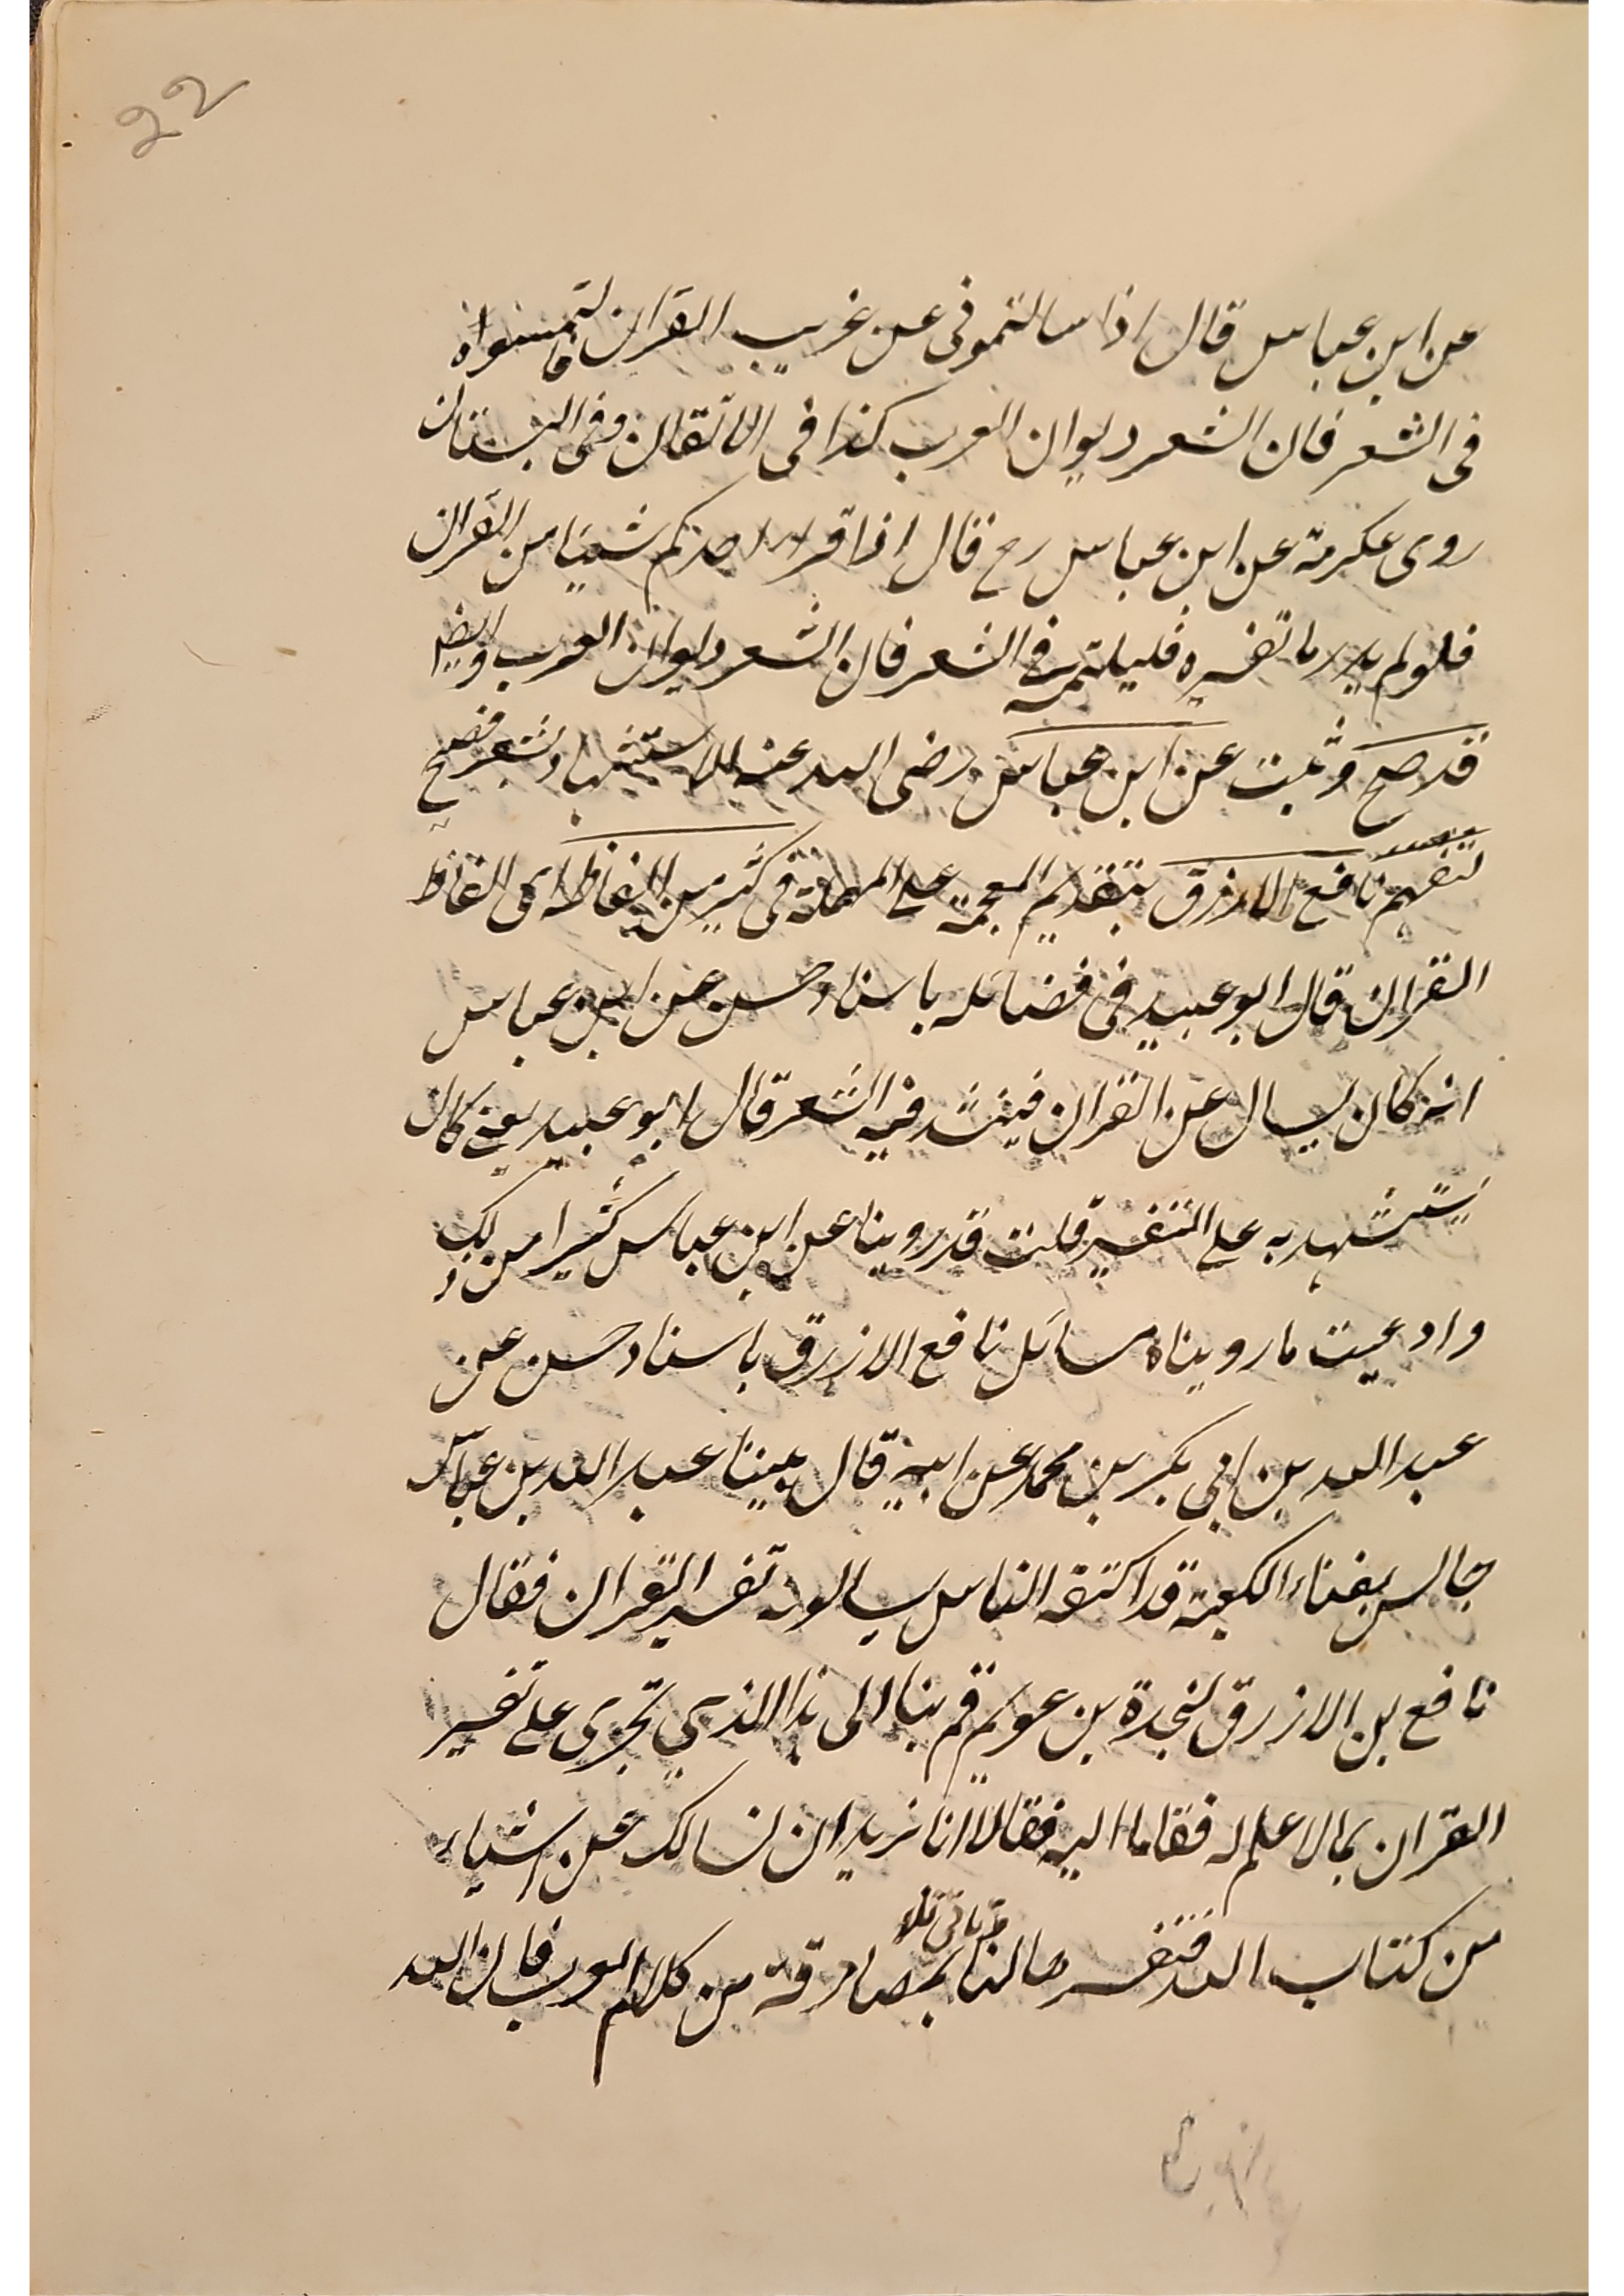 22
عن ابن عباس قال اذا سالتمونى عن غريب القرآن فالتمسواه
فى الشعر فان الشعر ديوان العرب كذا فى الاتقان وفى البستان
روى عكرمة عن ابن عباس رح قال اذا قرا احدكم شيئا من القرآن
فلولم يدر ما تفسيره فليلتمسه فى الشعر فان الشعر ديوان العرب وايضا
قد صح وثبت عن ابن عباس رضى الله عنه الاستشهاد بشعر فصيح
لتفهم نافع الازرق بتقديم المعجمة على المهملة فى كثير من الفاظه اى الفاظ
القران قال ابو عبيد فى فضائله باسناد حسن عن ابن عباس
انه كان يسال عن القران فينشد فيه الشعر قال ابو عبيد يعنى كان
يستشهد به على التفسير قلت قد روينا عن ابن عباس كثيرا من ذلك
واوعيت ما رويناه مسائل نافع الازرق باسناد حسن عن
عبد الله بن ابى بكر بن محمد عن ابيه قال بينا عبد الله بن عباس
جالس بفناء الكعبة قد اكتنفه الناس يسالونه تفسير القران فقال
نافع بن الازرق لنجدة بن عويم قم بنا الى هذا الذى يجرى على تفسير
القران بما لا علم له فقاما اليه فقالا انا نريد ان نسالك عن اشياء
من كتاب الله فتفسرها لنا بمصادقة من كلام العرب فان الله